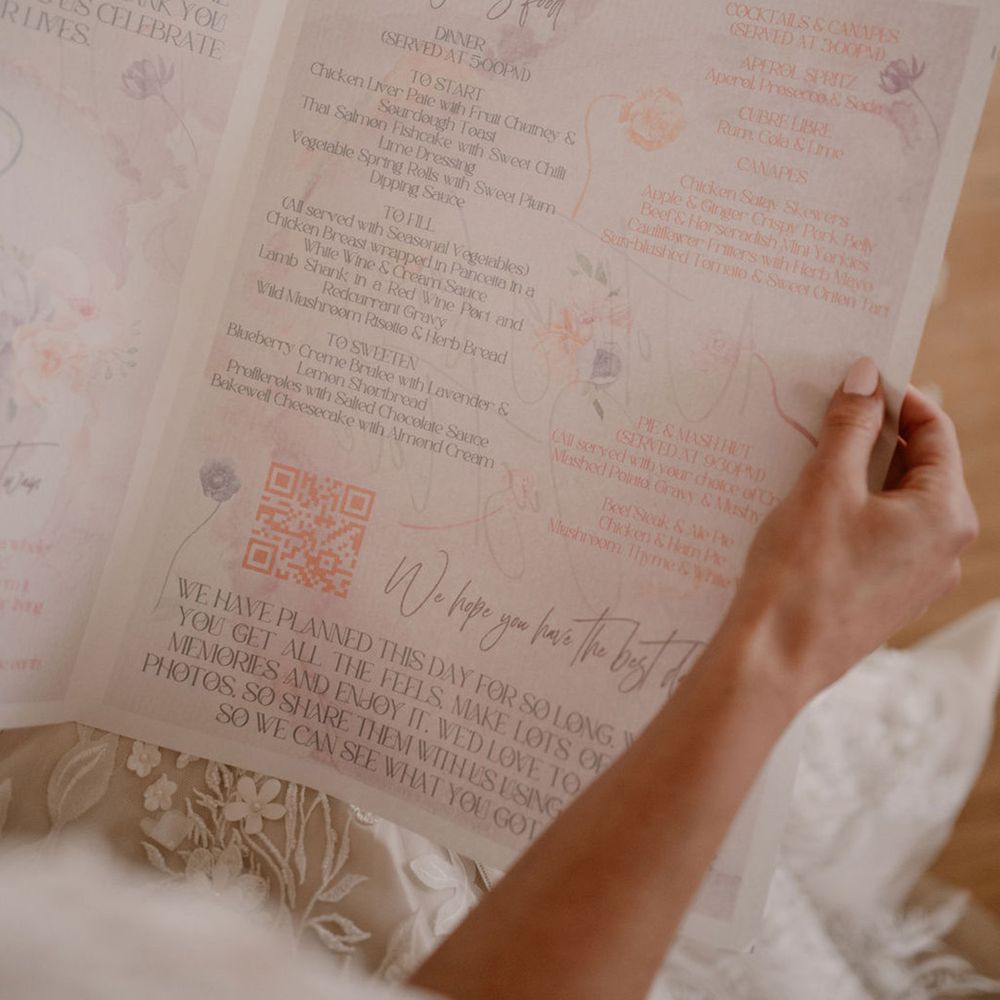 THANK YOU
US CELEBRATE
R LIVES.
food
DINNER
(SERVED AT 5:00PM)
TO START
Chicken Liver Pate with Fruit Chutney &
Sourdough Toast
Thai Salmon Fishcake with Sweet Chilli
Lime Dressing
Vegetable Spring Rolls with Sweet Plum
Dipping Sauce
TO FILL
(All served with Seasonal Vegetables)
Chicken Breast wrapped in Pancetta in a
White Wine & Cream Sauce
Lamb Shank in a Red Wine Port and
Redcurrant Gravy
Wild Mushroom Risotto & Herb Bread
TO SWEETEN
Blueberry Creme Brulee with Lavender &
Lemon Shortbread
Profiteroles with Salted Chocolate Sauce
Bakewell Cheesecake with Almond Cream
COCKTAILS & CANAPES
(SERVED AT 3:00PM)
APEROL SPRITZ
Aperol, Prosecco & Soda
CUBRE LIBRE
Rum, Cola & Lime
CANAPES
Chicken Satay Skewers
Apple & Ginger Crispy Pork Belly
Beef & Horseradish Mini Yorkies
Cauliflower Fritters with Herb Mayo
Sun-blushed Tomato & Sweet Onion Tart
PIE & MASH HUT
(SERVED AT 9:30PM)
(All served with your choice of
Mashed Potato, Gravy & Mushy
Beef Steak & Ale Pie
Chicken & Ham Pie
Mushroom, Thyme & White
We hope you have the best
WE HAVE PLANNED THIS DAY FOR SO LONG,
YOU GET ALL THE FEELS, MAKE LOTS OF
MEMORIES AND ENJOY IT. WE'D LOVE TO
PHOTOS, SO SHARE THEM WITH US USING
SO WE CAN SEE WHAT YOU GOT